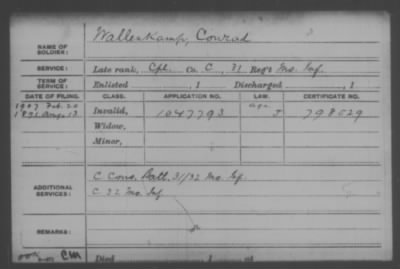 NAME OF SOLDIER: Wallenkamp, Conrad
SERVICE: Late rank, Cpl. Co. C, 31 Reg't Mo. Inf.
TERM OF SERVICE: Enlisted , 1 Discharged , 1
DATE OF FILING. CLASS. APPLICATION NO. LAW. CERTIFICATE NO.
1907 Feb. 20 age
1891 Aug. 13 Invalid, 1047793 J 798029
Widow,
Minor,
ADDITIONAL SERVICES: C Cons. Batt. 31/32 Mo. Inf.
C 32 Mo. Inf
REMARKS:
Died , 1 , at